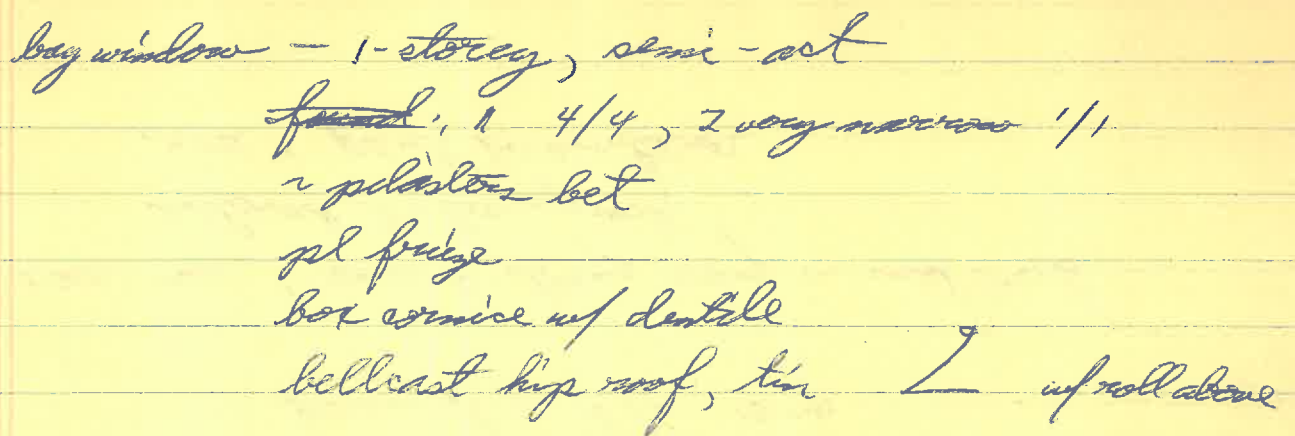 bay window - 1-storey, semi-oct
found., 1 4/4, 2 very narrow 1/1
~ pilasters bet
pl frieze
box cornice w/ dentile
bellcast hip roof, tin w/ roll above